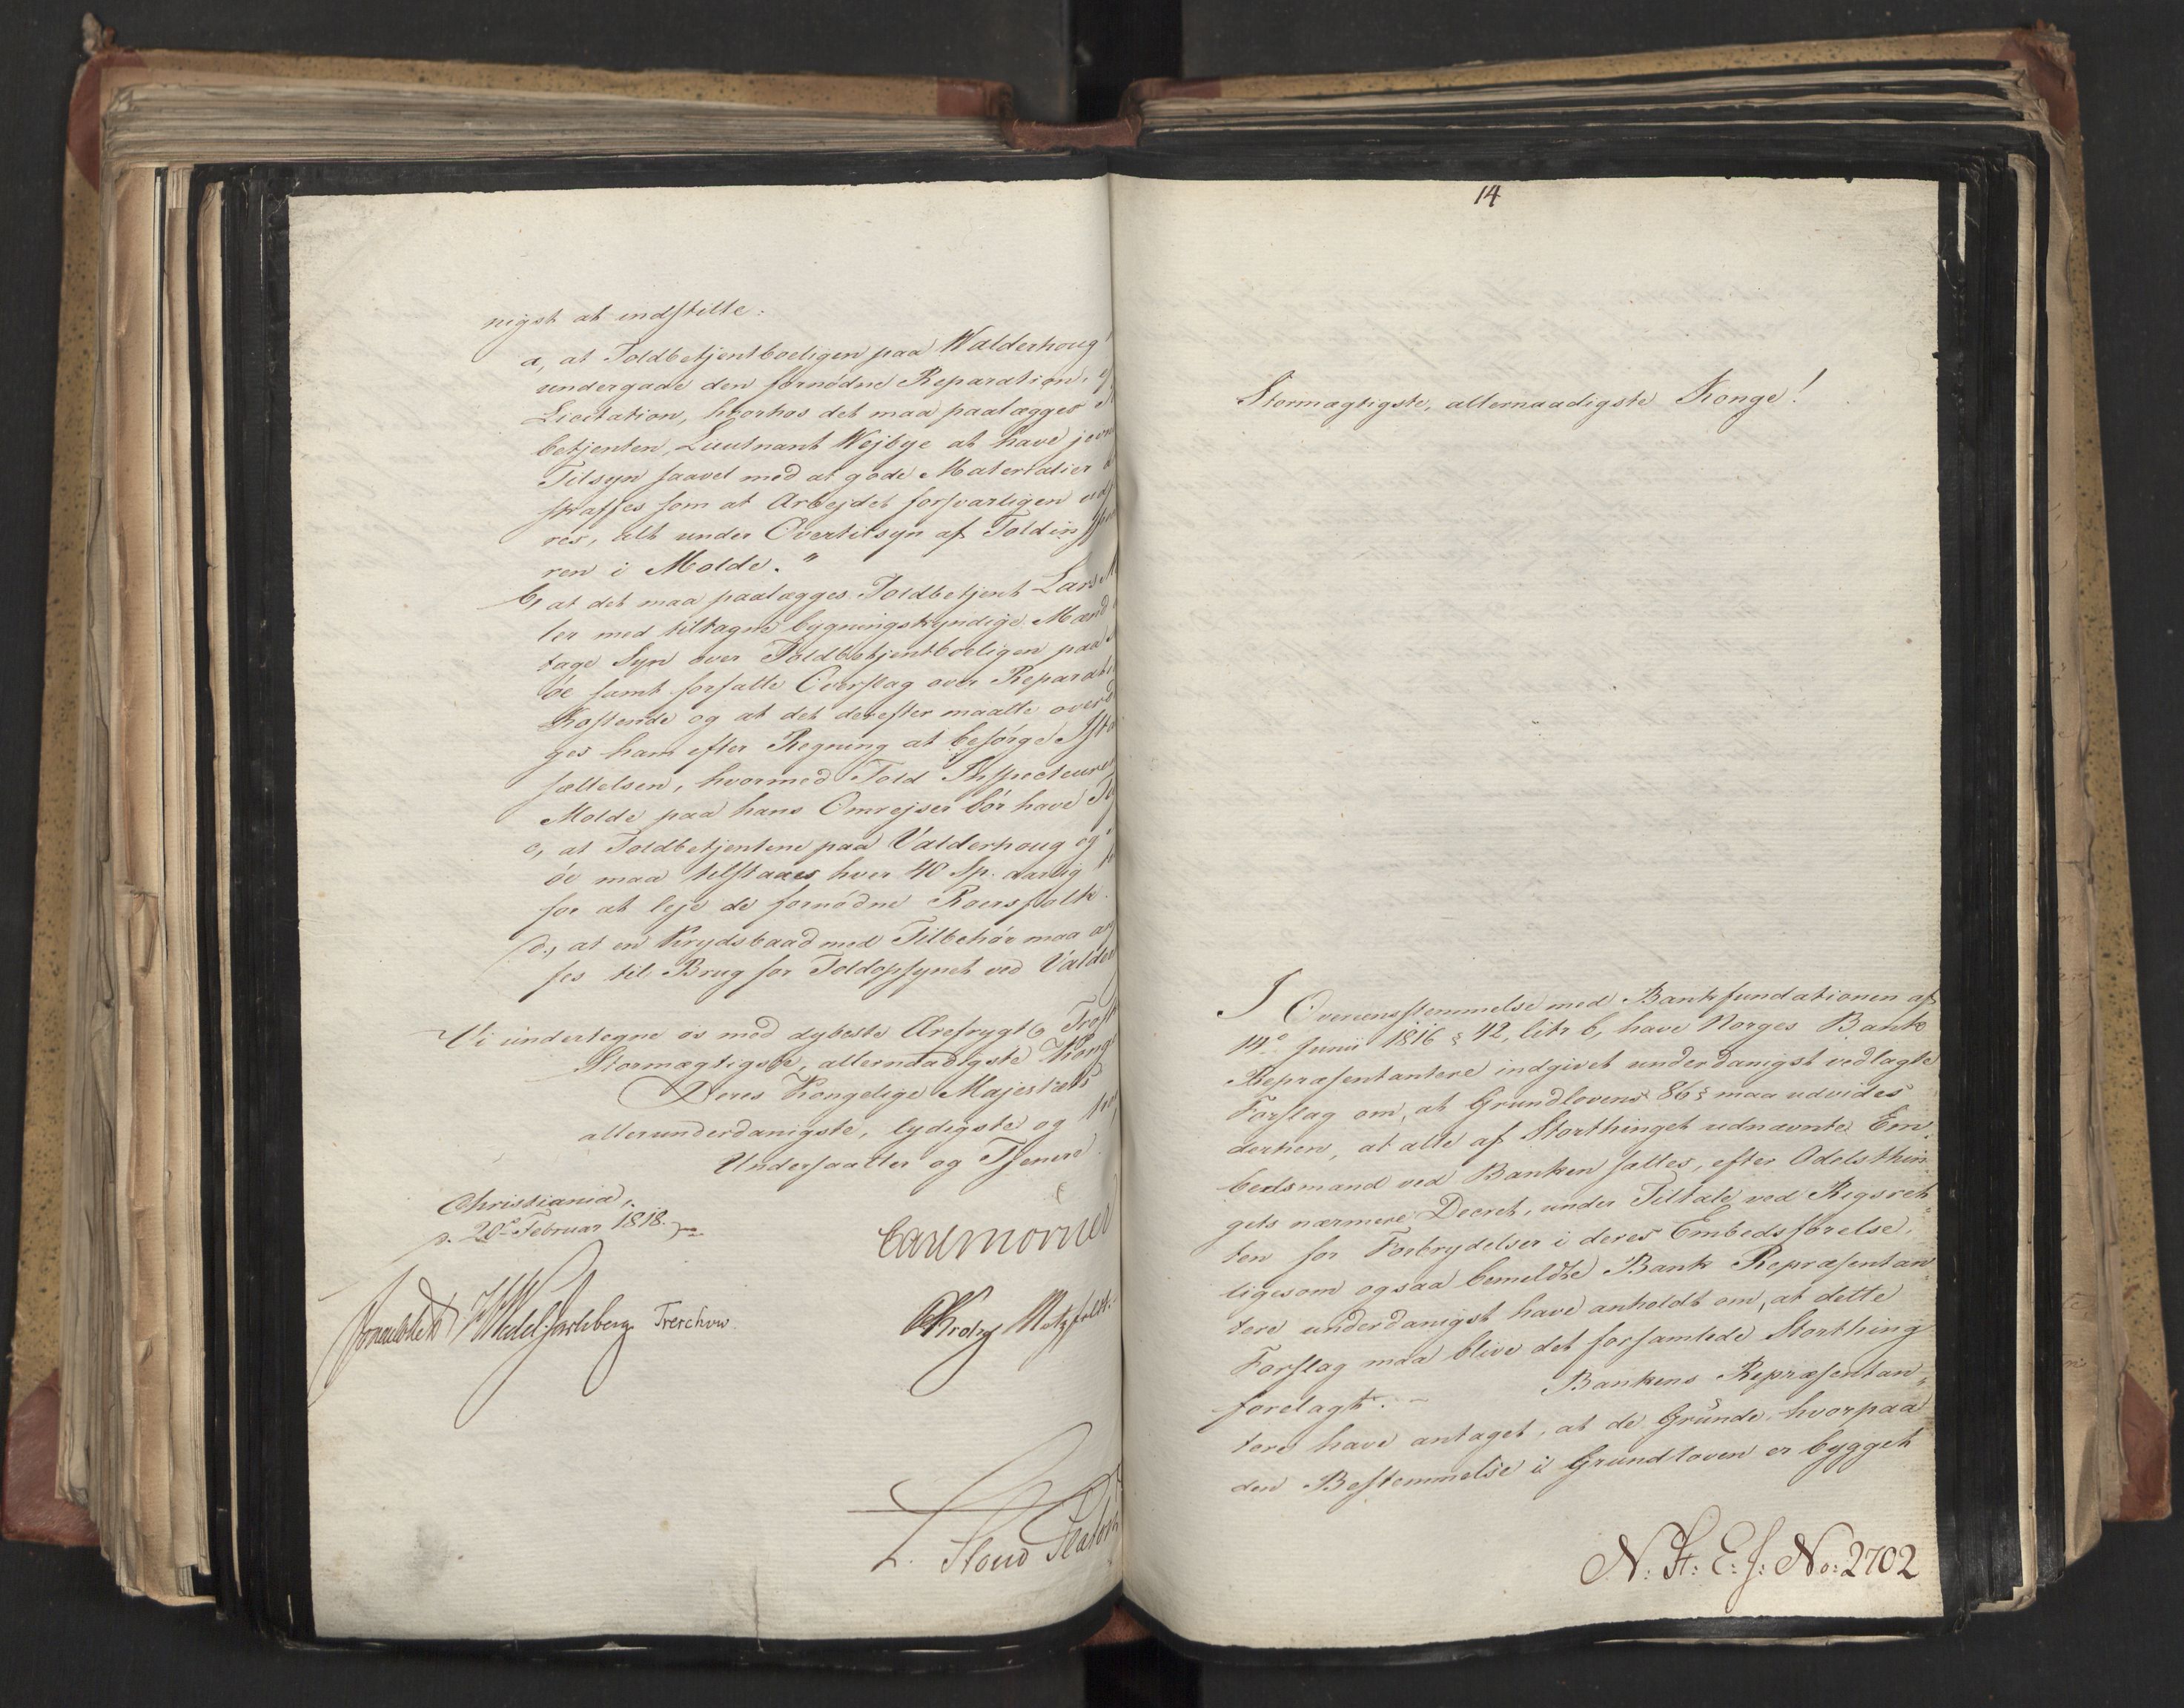 nigst at indstille:
a, at Toldbetjentboeligen paa Walderhoug
undergaae den fornödne Reparation
Licitation, hvorhos det maa paalægges
betjenten, Lieutnant Wejbye at have jevn
Tilsyn saavel med at gode Materialier
skaffes som at Arbejdet forsvarligen
res, alt under Overtilsyn af Toldinspec
ren i Molde."
b, at det maa paalægges Toldbetjent Lars
ler med tiltagne bygningskyndige Mænd
tage Syn over Toldbetjentboeligen paa
öe samt forfatte Overslag over Reparat
Kostende og at det derefter maatte overd
ges ham efter Regning at besörge Ist
sættelsen, hvormed Told Inspecteuren
Molde paa hans Omrejser bör have
c, at Toldbetjentene paa Valderhoug og
öe maa tilstaaes hver 40 Sp. aarlig
for at leje de fornödne Roersfolk.
d, at en Krydsbaad med Tilbehör maa
fes til Brug for Toldopsynet ved Valder
Vi undertegne os med dybeste Ærefrygt
Stormægtigste, allernaadigste Konge
Deres Kongelige Majestæts
allerunderdanigste, lydigste og
Undersaatter og Tjenere.
Christiania,
d. 20de Februar 1818.
Carl Mörner
Sommerhielm Wedel Jarlsberg Treschow
Krog Motzfeldt
L. Stoud Platou
14
Stormægtigste, allernaadigste Konge!
I Overeensstemmelse med Bankfundationen af
14de Junii 1816 § 42, litr b, have Norges Banks
Repræsentantere indgivet underdanigst vedlagte
Forslag om, at Grundlovens 86 § maa udvides
derhen, at alle af Storthinget udnævnte Em-
bedsmænd ved Banken sættes, efter Odelsthin-
gets nærmere Decret, under Tiltale ved Rigsret-
ten for Forbrydelser i deres Embedsförelse,
ligesom ogsaa bemeldte Bank Repræsentan-
tere underdanigst have anholdt om, at dette
Forslag maa blive det forsamlede Storthing
forelagt. — Bankens Repræsentan-
tere have antaget, at de Grunde, hvorpaa
den Bestemmelse i Grundloven er bygget
N: St: E: J: No: 2702